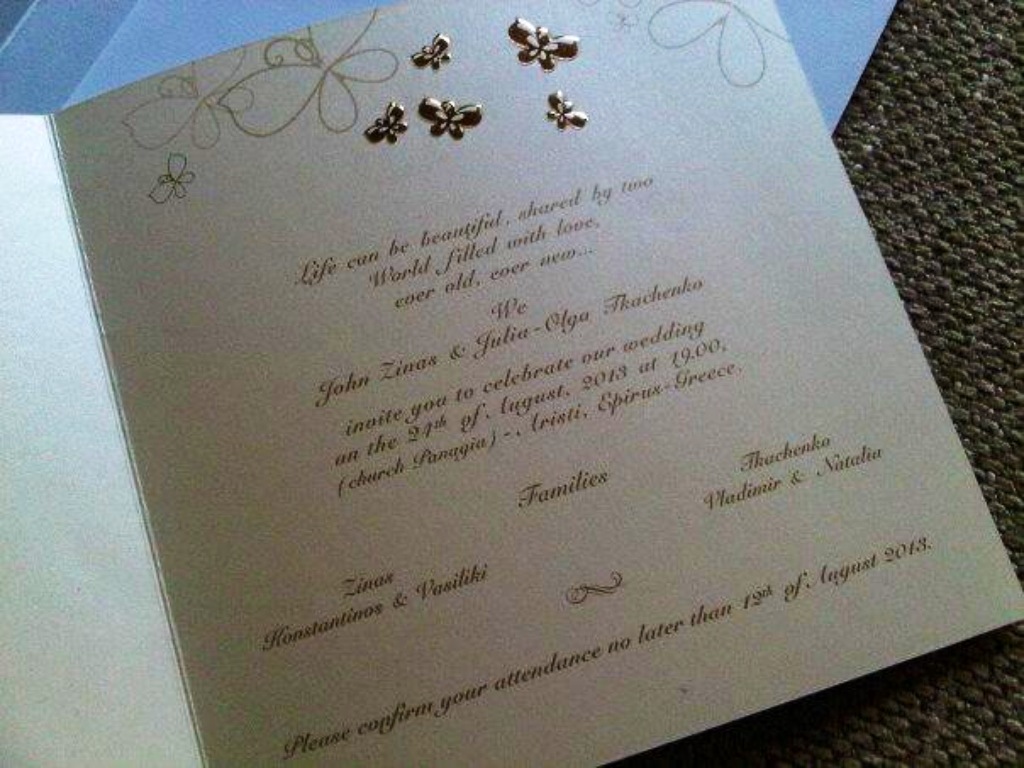 Life can be beautiful, shared by two
World filled with love,
ever old, ever new...
We
John Zinas & Julia-Olga Tkachenko
invite you to celebrate our wedding
on the 24th of August, 2013 at 19.00,
(church Panagia) - Aristi, Epirus-Greece.
Families
Tkachenko
Vladimir & Natalia
Zinas
Konstantinos & Vasiliki
Please confirm your attendance no later than 12th of August 2013.